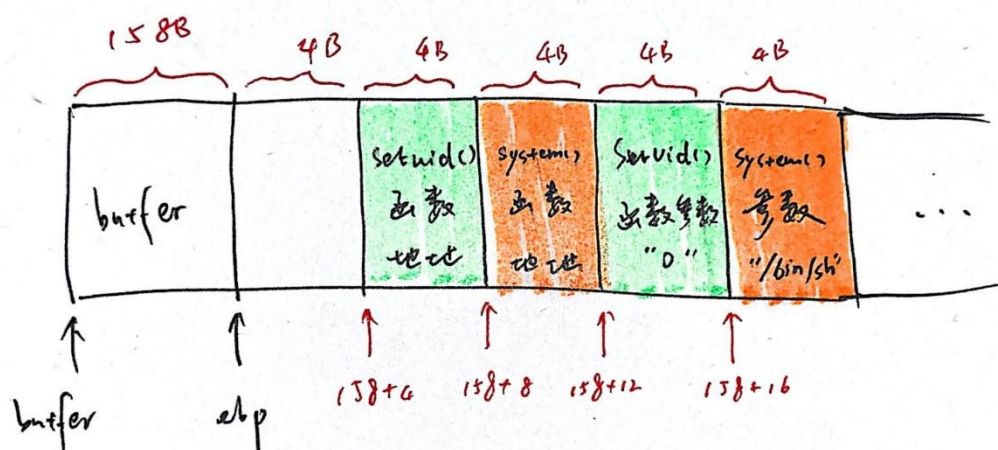 158B 4B 4B 4B 4B 4B
buffer
setuid()
函数
地址
system()
函数
地址
setuid()
函数参数
"0"
system()
参数
"/bin/sh"
...
buffer
ebp
158+4
158+8
158+12
158+16